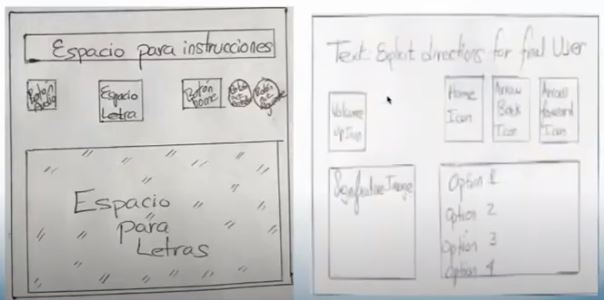 Espacio para instrucciones
Botón Audio
Espacio
Letra
Botón
home
Botón
Botón
Siguiente
Espacio
para
Letras
Text: Explicit directions for final User
Volume
Up Icon
Home
Icon
Arrow
Back
Icon
Arrow
forward
Icon
Significative Image
Option 1
Option 2
Option 3
Option 4